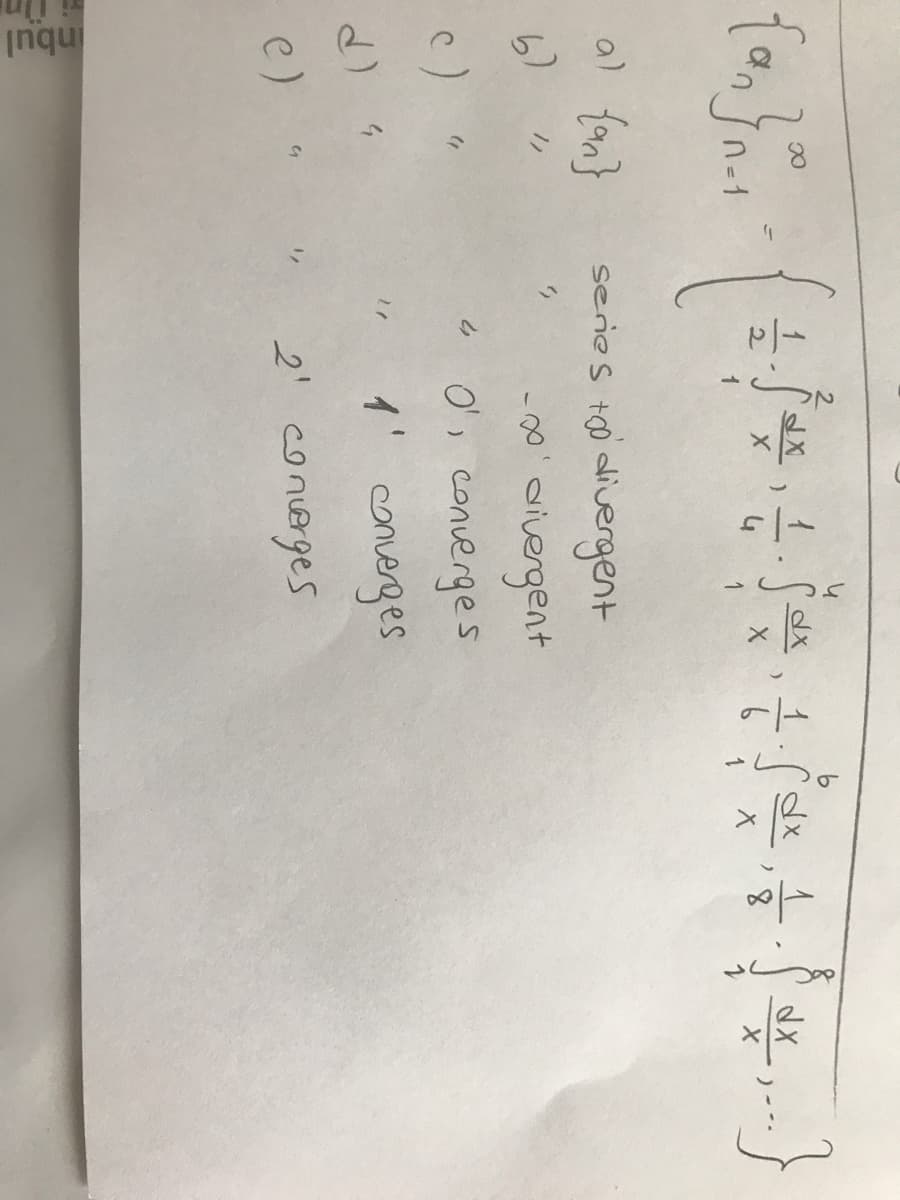 {an}∞n=1 = { 1/2 · ∫₁² dx/x , 1/4 · ∫₁⁴ dx/x , 1/6 · ∫₁⁶ dx/x , 1/8 · ∫₁⁸ dx/x , ... }
a) {an} series +∞' divergent
b) " " -∞' divergent
c) " " 0', converges
d) " " 1' converges
e) " " 2' converges